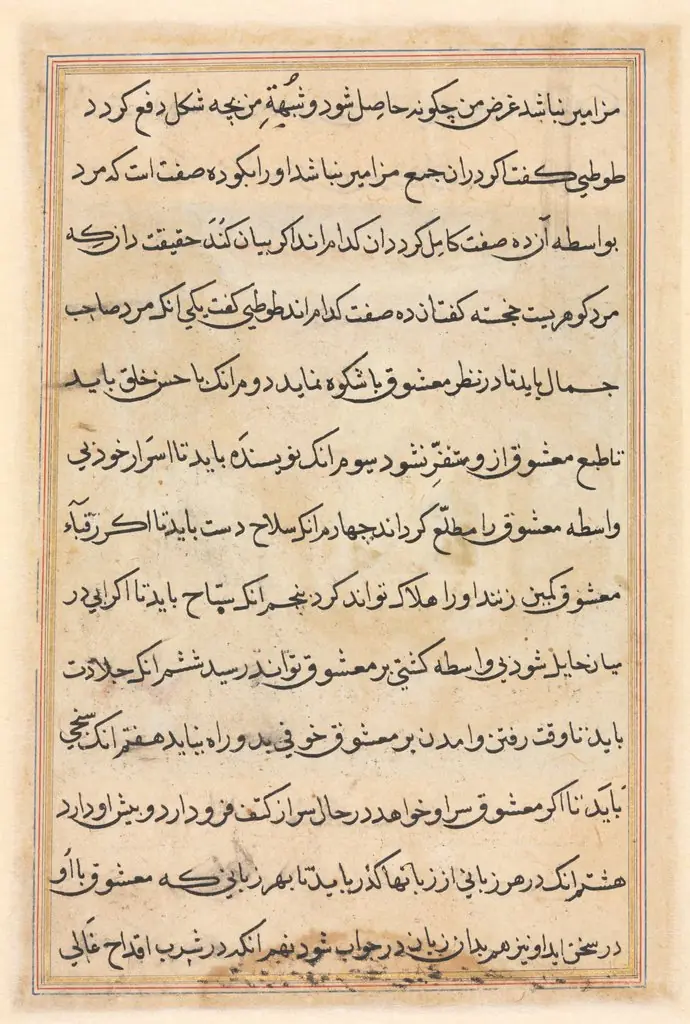 مزامیر نباشد غرض من چکونه حاصل شود و شُبهةِ من بچه شکل دفع کردد
طوطی کفت اکر دران جمع مزامیر نباشد اورا بکو ده صفت است که مرد
بواسطه آن ده صفت کامل کردد ان کدام اند اکر بیان کُندَ حقیقت دان که
مرد کوهریست خجسته کفت ان ده صفت کدام اند طوطی کفت یکی انک مرد صاحب
جمال باید تا در نظر معشوق با شکوه نماید دوم انک با حسن خلق باید
تا طبع معشوق ازو متنفِّر نشود سیوم انک نویسندَه باید تا اسرَار خود بی
واسطه معشوق را مطلّع کرداند چهارم انک سلاح دست باید تا اکر رُقبَآء
معشوق کمین زنند اورا هلاک تواند کرد پنجم انک سبّاح باید تا اکر ابی در
میان حایل شود بی واسطه کشتی بر معشوق تواند رسید ششم انک جلادت
باید تا وقت رفتن و امدن بر معشوق خوفی بدو راه نیاید هفتم انک سخی
بَایَد تا اکر معشوق سر او خواهد در حال سر از کتف فرود ارد و پیش او دارد
هشتم انک در هر زبانی از زبانها کذر باید تا بهر زبانی که معشوق با اُو
در سخن اید او نیز هم بدان زبان در جواب شود نهم انکه در شرب اقداح غَالی